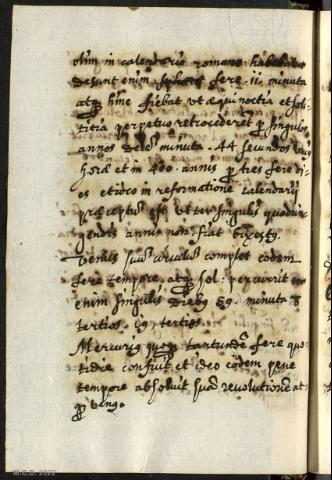 olim in calendario romano habebatur
desunt enim fere 11 minuta
atq hinc fiebat ut æquinoctia et sol-
titia perpetuo retrocederēt p singulos
annos minuta 44 secundos
horæ et in 400 annis p tres fere di-
es et ideo in reformatione calendarij
præceptū est ut ter singulis quadrin
gentis annis non fiat bixestꝰ.
Venus suū circulū complet eodem
fere tempore atq sol: percurrit
enim singulis diebꝰ 59 minuta 8
tertios. tertios.
Mercuriꝰ quoq tantundē fere quo-
tidie conficit et ideo eodem pene
tempore absolvit suā revolutionē at-
q Venꝰ.
M.C.D. 2022